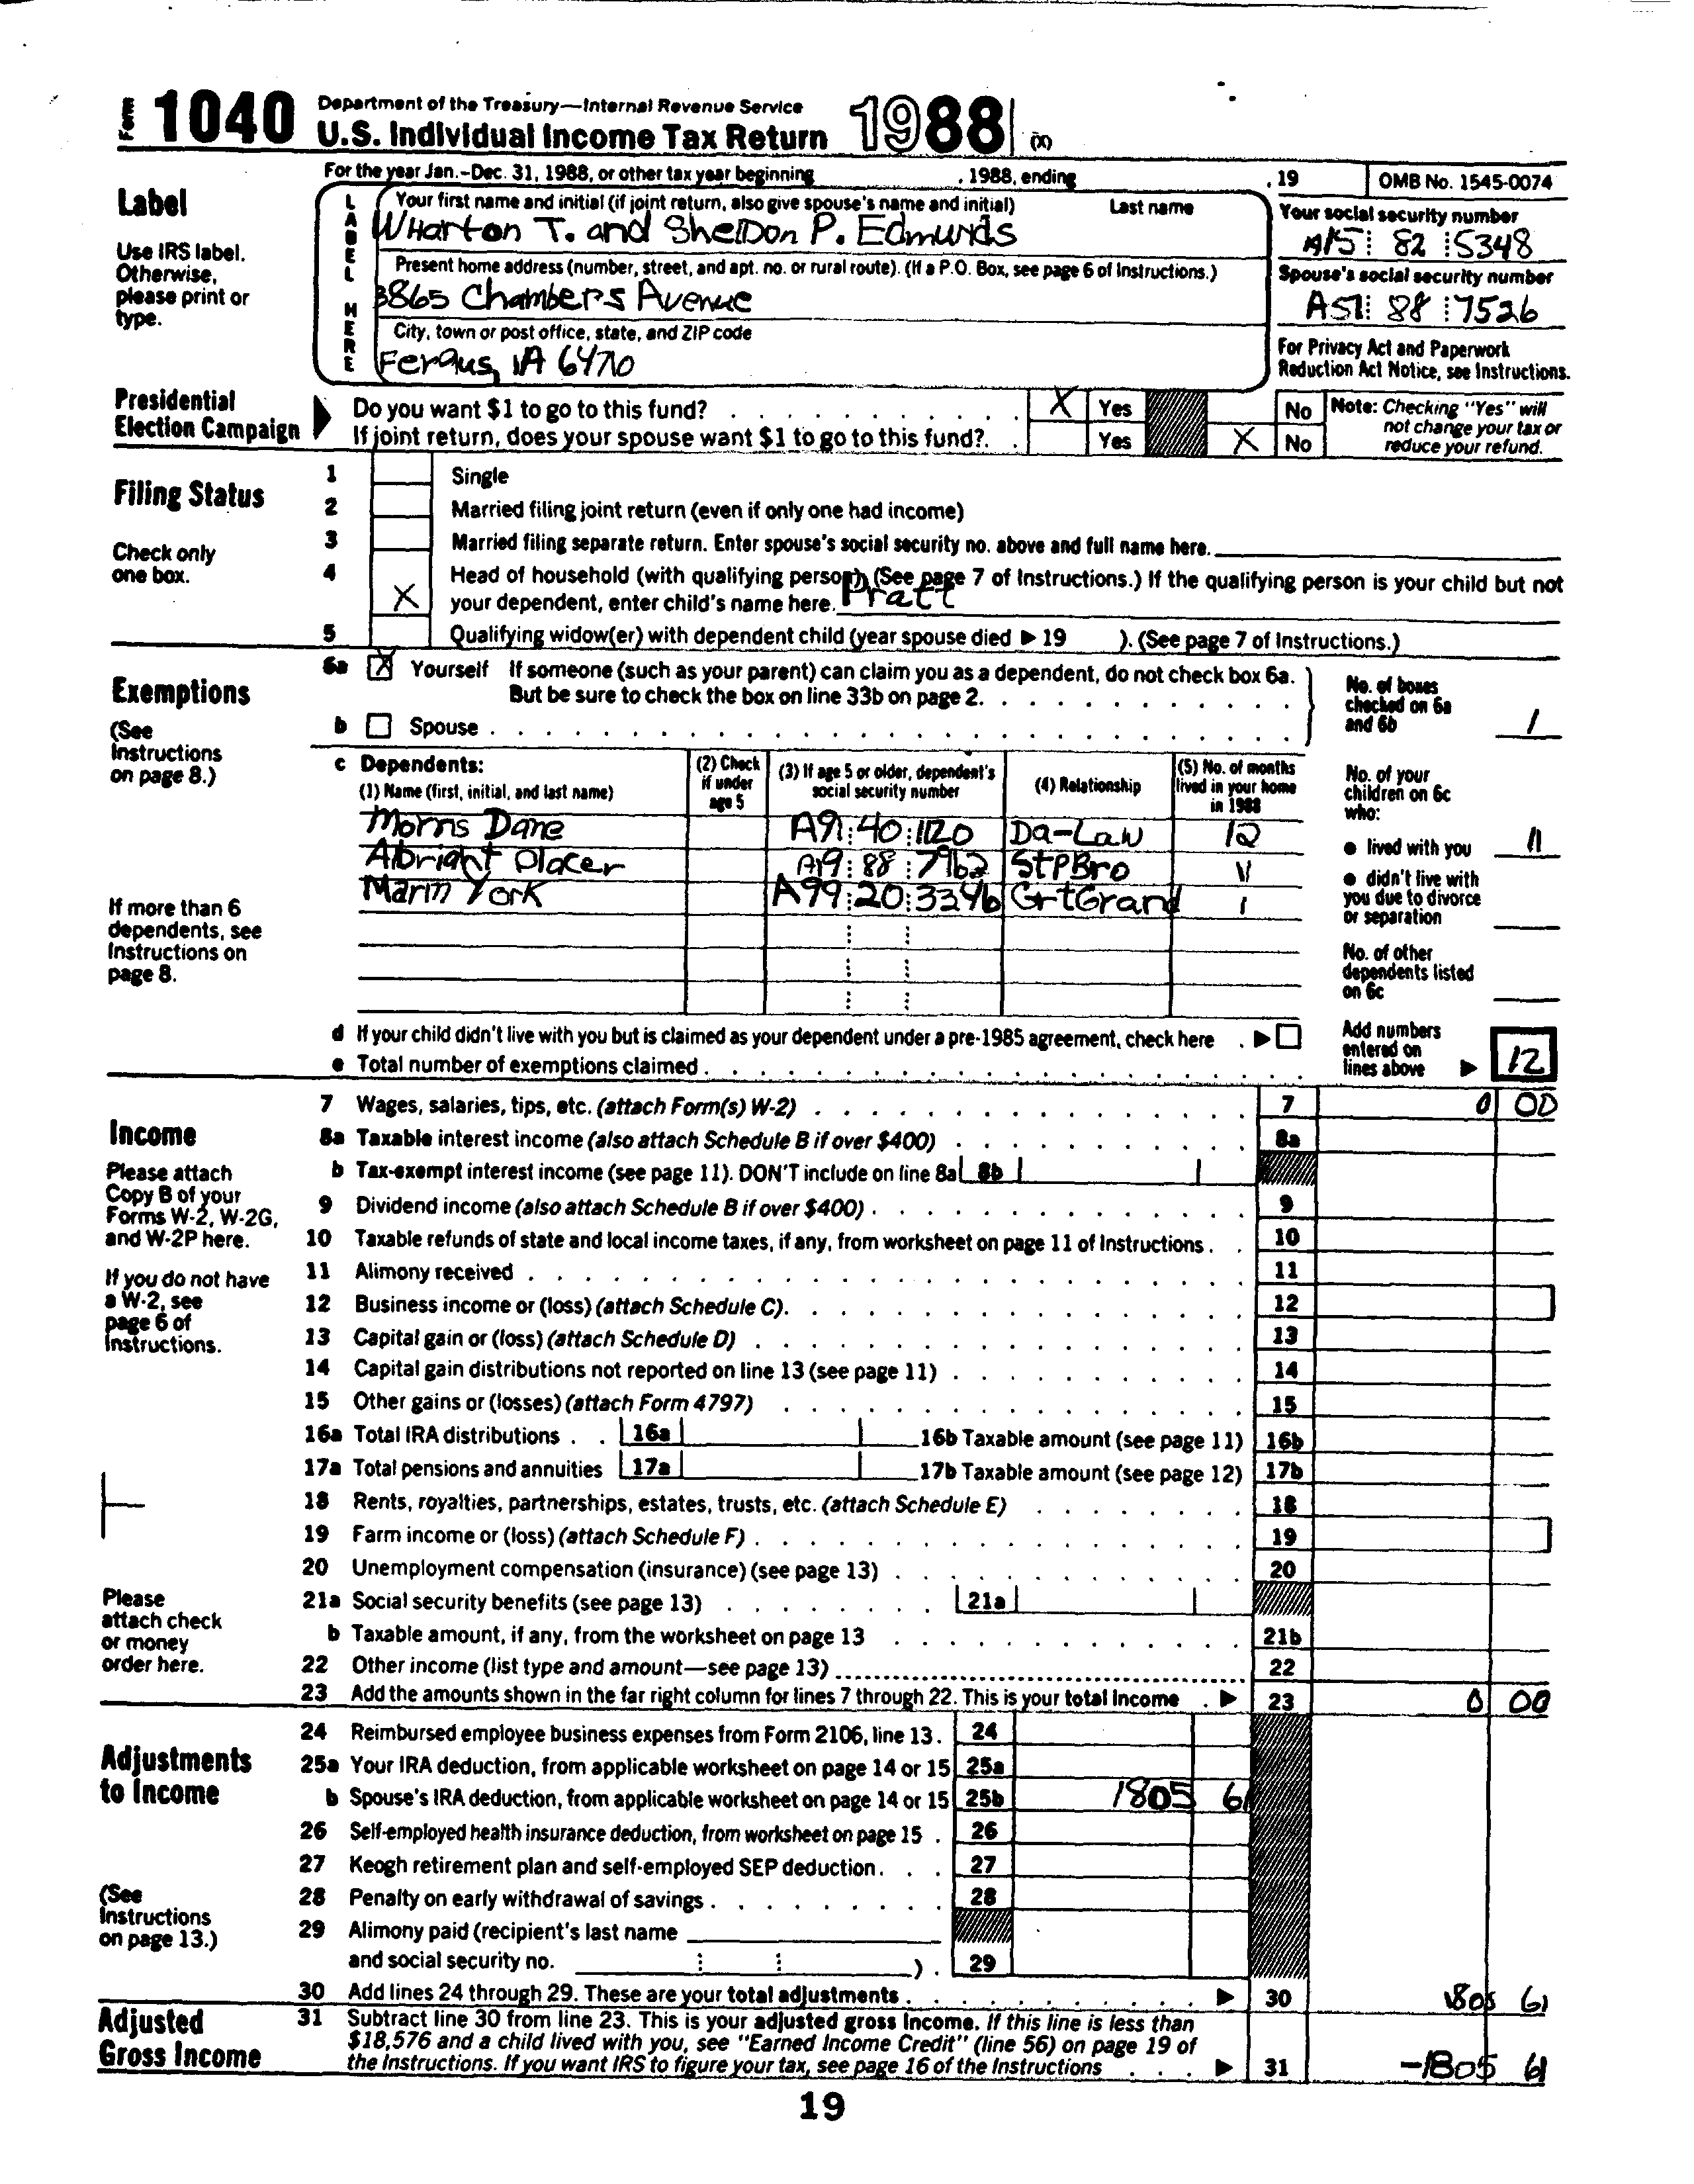 Form 1040 Department of the Treasury—Internal Revenue Service
U.S. Individual Income Tax Return 1988 (X)
For the year Jan.-Dec. 31, 1988, or other tax year beginning , 1988, ending , 19 OMB No. 1545-0074
Label
Use IRS label. Otherwise, please print or type.
LABEL HERE
Your first name and initial (if joint return, also give spouse's name and initial) Last name
Wharton T. and Sheldon P. Edmunds
Your social security number
A15 82 5348
Present home address (number, street, and apt. no. or rural route). (If a P.O. Box, see page 6 of Instructions.)
3865 Chambers Avenue
Spouse's social security number
A51 88 7526
City, town or post office, state, and ZIP code
Fergus, IA 64710
For Privacy Act and Paperwork Reduction Act Notice, see Instructions.
Presidential Election Campaign
Do you want $1 to go to this fund? X Yes No
If joint return, does your spouse want $1 to go to this fund?. Yes X No
Note: Checking "Yes" will not change your tax or reduce your refund.
Filing Status
Check only one box.
1 Single
2 Married filing joint return (even if only one had income)
3 Married filing separate return. Enter spouse's social security no. above and full name here.
4 X Head of household (with qualifying person). (See page 7 of Instructions.) If the qualifying person is your child but not
your dependent, enter child's name here. Pratt
5 Qualifying widow(er) with dependent child (year spouse died ▶ 19 ). (See page 7 of Instructions.)
Exemptions
(See Instructions on page 8.)
6a X Yourself If someone (such as your parent) can claim you as a dependent, do not check box 6a.
But be sure to check the box on line 33b on page 2.
b Spouse
No. of boxes checked on 6a and 6b 1
c Dependents:
(1) Name (first, initial, and last name) (2) Check if under age 5 (3) If age 5 or older, dependent's social security number (4) Relationship (5) No. of months lived in your home in 1988
Morris Dane A91 40 1120 Da-Law 12
Albright Placer A19 88 7962 StPBro 11
Marin York A99 20 3346 GrtGrand 1
If more than 6 dependents, see Instructions on page 8.
No. of your children on 6c who:
● lived with you 11
● didn't live with you due to divorce or separation
No. of other dependents listed on 6c
d If your child didn't live with you but is claimed as your dependent under a pre-1985 agreement, check here ▶
e Total number of exemptions claimed
Add numbers entered on lines above ▶ 12
Income
Please attach Copy B of your Forms W-2, W-2G, and W-2P here.
If you do not have a W-2, see page 6 of Instructions.
Please attach check or money order here.
7 Wages, salaries, tips, etc. (attach Form(s) W-2) 7 0 00
8a Taxable interest income (also attach Schedule B if over $400) 8a
b Tax-exempt interest income (see page 11). DON'T include on line 8a 8b
9 Dividend income (also attach Schedule B if over $400) 9
10 Taxable refunds of state and local income taxes, if any, from worksheet on page 11 of Instructions 10
11 Alimony received 11
12 Business income or (loss) (attach Schedule C). 12
13 Capital gain or (loss) (attach Schedule D) 13
14 Capital gain distributions not reported on line 13 (see page 11) 14
15 Other gains or (losses) (attach Form 4797) 15
16a Total IRA distributions 16a 16b Taxable amount (see page 11) 16b
17a Total pensions and annuities 17a 17b Taxable amount (see page 12) 17b
18 Rents, royalties, partnerships, estates, trusts, etc. (attach Schedule E) 18
19 Farm income or (loss) (attach Schedule F) 19
20 Unemployment compensation (insurance) (see page 13) 20
21a Social security benefits (see page 13) 21a
b Taxable amount, if any, from the worksheet on page 13 21b
22 Other income (list type and amount—see page 13) 22
23 Add the amounts shown in the far right column for lines 7 through 22. This is your total income ▶ 23 0 00
Adjustments to Income
(See Instructions on page 13.)
24 Reimbursed employee business expenses from Form 2106, line 13. 24
25a Your IRA deduction, from applicable worksheet on page 14 or 15 25a
b Spouse's IRA deduction, from applicable worksheet on page 14 or 15 25b 1805 61
26 Self-employed health insurance deduction, from worksheet on page 15 26
27 Keogh retirement plan and self-employed SEP deduction 27
28 Penalty on early withdrawal of savings 28
29 Alimony paid (recipient's last name
and social security no. ) 29
30 Add lines 24 through 29. These are your total adjustments ▶ 30 1805 61
Adjusted Gross Income
31 Subtract line 30 from line 23. This is your adjusted gross income. If this line is less than
$18,576 and a child lived with you, see "Earned Income Credit" (line 56) on page 19 of
the Instructions. If you want IRS to figure your tax, see page 16 of the Instructions ▶ 31 -1805 61
19